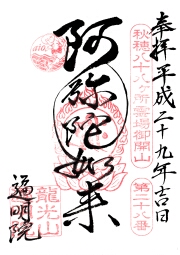 奉拝平成二十九年吉日
秋穂八十八ヶ所霊場御開山
第二十八番
阿弥陀如来
龍光山
遍明院